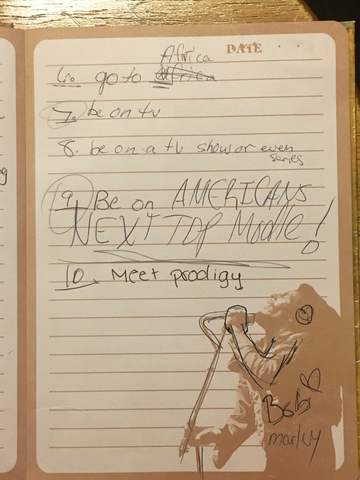 Africa
DATE
6. go to africa
7. be on tv
8. be on a tv show or even
series
9. Be on AMERICANS
NEXT TOP Modle!
10. Meet prodigy
Bob
marley